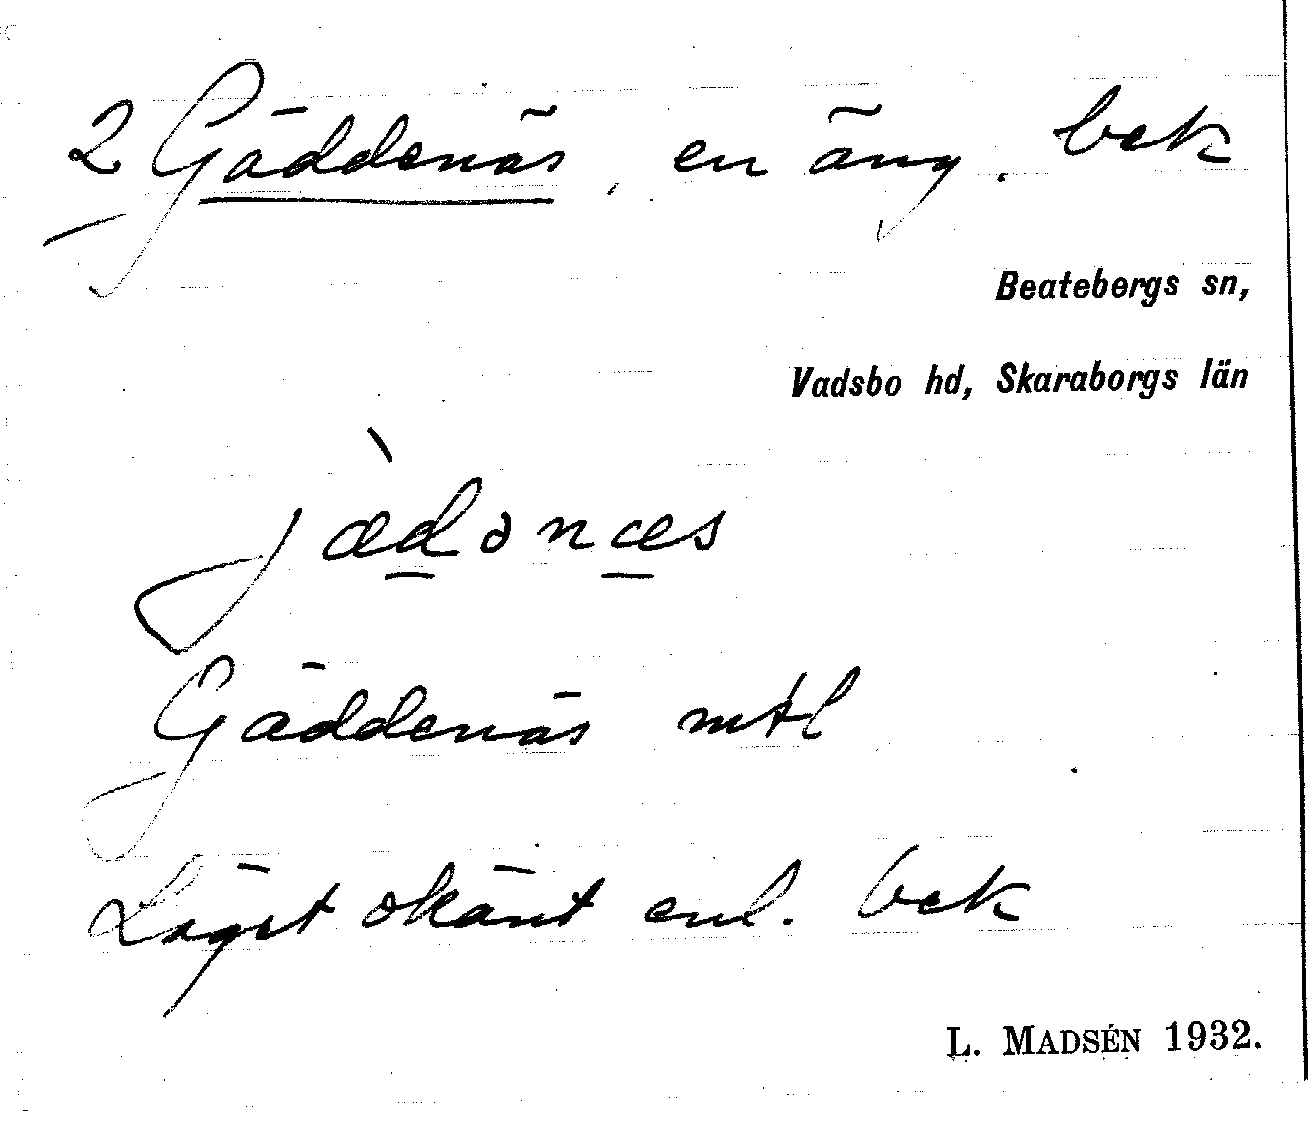 2 Gäddenäs, en äng. bek
Beatebergs sn,
Vadsbo hd, Skaraborgs län
jæ̀dənæs
Gäddenäs mtl
Läget okänt enl. bek
L. MADSÉN 1932.